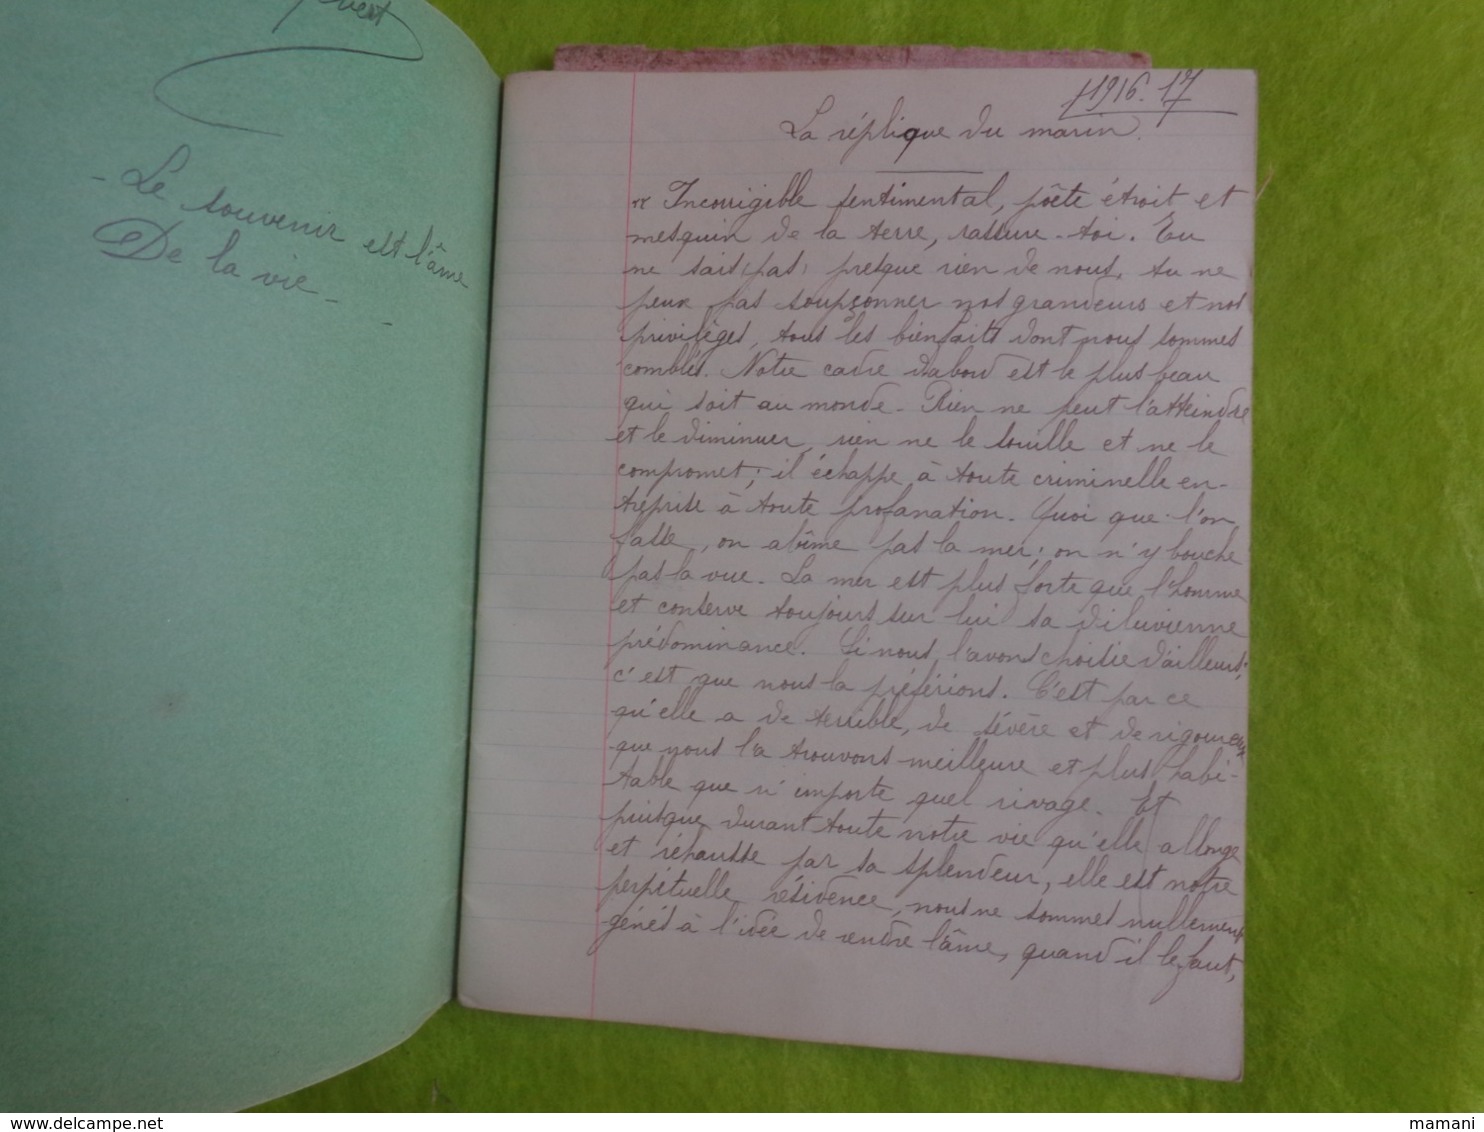 - Le souvenir est l'âme
De la vie -
1916.17
La réplique du marin.
" Incorrigible sentimental, poëte étroit et
mesquin de la terre, rassure-toi. Tu
ne sais pas presque rien de nous, tu ne
peux pas soupçonner nos grandeurs et nos
privilèges, tous les bienfaits dont nous sommes
comblés. Notre cadre d'abord est le plus beau
qui soit au monde. Rien ne peut l'atteindre
et le diminuer, rien ne le souille et ne le
compromet; il échappe à toute criminelle en-
treprise à toute profanation. Quoi que l'on
fasse, on abîme pas la mer; on n'y bouche
pas la vue. La mer est plus forte que l'homme
et conserve toujours sur lui sa diluvienne
prédominance. Si nous l'avons choisie d'ailleurs,
c'est que nous la préférions. C'est par ce
qu'elle a de terrible, de sévère et de rigoureux
que nous la trouvons meilleure et plus habi-
table que n'importe quel rivage. Et
puisque durant toute notre vie qu'elle allonge
et réhausse par sa splendeur, elle est notre
perpétuelle résidence, nous ne sommes nullement
gênés à l'idée de rendre l'âme, quand il le faut,
mamani